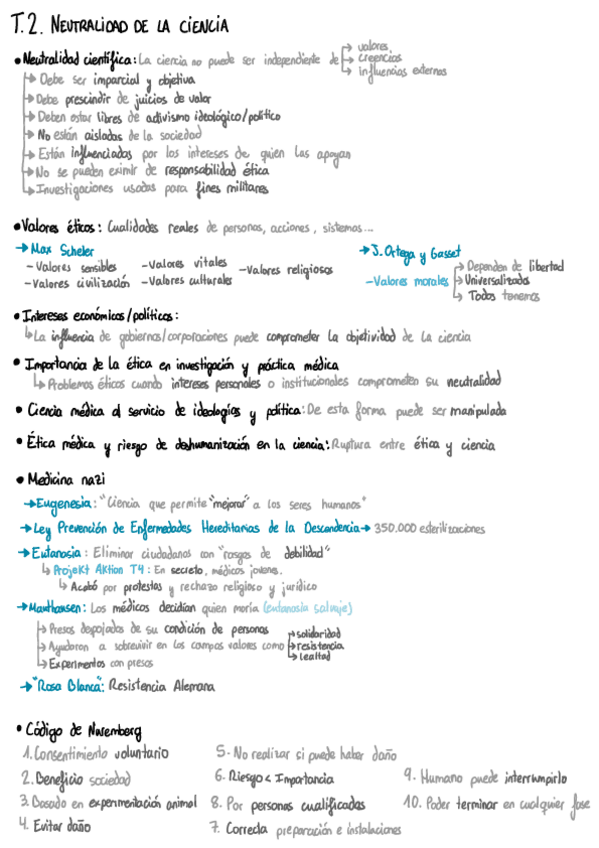 T.2. NEUTRALIDAD DE LA CIENCIA
• Neutralidad científica: La ciencia no puede ser independiente de → valores
→ creencias
→ influencias externas
→ Debe ser imparcial y objetiva
→ Debe prescindir de juicios de valor
→ Deben estar libres de activismo ideológico/político
→ No están aisladas de la sociedad
→ Están influenciadas por los intereses de quien las apoyan
→ No se pueden eximir de responsabilidad ética
→ Investigaciones usadas para fines militares
• Valores éticos: Cualidades reales de personas, acciones, sistemas...
→ Max Scheler
- Valores sensibles - Valores vitales - Valores religiosos
- Valores civilización - Valores culturales
→ J. Ortega y Gasset
- Valores morales → Dependen de libertad
→ Universalizados
→ Todos tenemos
• Intereses económicos/políticos:
→ La influencia de gobiernos/corporaciones puede comprometer la objetividad de la ciencia
• Importancia de la ética en investigación y práctica médica
→ Problemas éticos cuando intereses personales o institucionales comprometen su neutralidad
• Ciencia médica al servicio de ideologías y política: De esta forma puede ser manipulada
• Ética médica y riesgo de deshumanización en la ciencia: Ruptura entre ética y ciencia
• Medicina nazi
→ Eugenesia: "Ciencia que permite "mejorar" a los seres humanos"
→ Ley Prevención de Enfermedades Hereditarias de la Descendencia → 350.000 esterilizaciones
→ Eutanasia: Eliminar ciudadanos con "rasgos de debilidad"
→ Projekt Aktion T4: En secreto, médicos jovenes.
→ Acabó por protestas y rechazo religioso y jurídico
→ Mauthausen: Los médicos decidían quien moría (eutanasia salvaje)
→ Presos despojados de su condición de personas
→ Ayudaron a sobrevivir en los campos valores como → solidaridad
→ resistencia
→ lealtad
→ Experimentos con presos
→ "Rosa Blanca": Resistencia Alemana
• Código de Nuremberg
1. Consentimiento voluntario
2. Beneficio sociedad
3. Basado en experimentación animal
4. Evitar daño
5. No realizar si puede haber daño
6. Riesgo < Importancia
8. Por personas cualificadas
7. Correcta preparación e instalaciones
9. Humano puede interrumpirlo
10. Poder terminar en cualquier fase